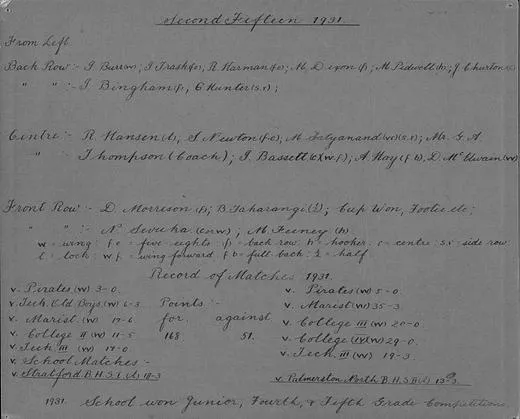 Second Fifteen 1931.
From Left
Back Row:- J. Burr(w); J Trask(fe), R. Harman(fe); M. Dixon(f); M Pidwell(h); J. Churton(c)
" " :- J. Bingham(f), C Hunter(s.r);
Centre:- R Hansen(l), S Newton(fe); M Satyanand(w)(s.r); Mr. G. A.
" Thompson (Coach); J. Bassett(c)(w.f); A. Hay(f b), D. McElwain(w)
Front Row:- D. Morrison(f); B. Taharangi(½); Cup Won, Footie etc;
" " :- N. (c or w); M. Feeney (h)
w = wing: f e = five-eights: f = back row: h = hooker: c = centre: s.r = side row
l = lock: w f = wing forward: f b = full back: ½ = half.
Record of Matches 1931.
v. Pirates (w) 3-0. v. Pirates (w) 5-0.
v. Tech. Old Boys (w) 6-3 Points:- v. Marist (w) 35-3.
v. Marist. (w) 17-6 for. against v. College III (w) 20-0.
v. College II (w) 11-5 168 51. v. College IV (w) 29-0.
v. Tech. III (w) 17-0 v. Tech. III (w) 19-3.
v. School Matches -
v. Stratford. B.H.S. I. (l) v. Palmerston North B.H.S. II (l)
1931. School won Junior, Fourth, & Fifth Grade Competitions.